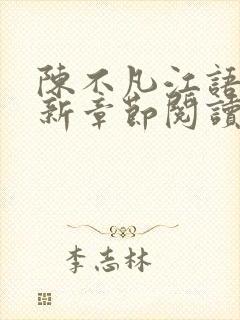 陳不凡江語
新章節閱讀
李志林